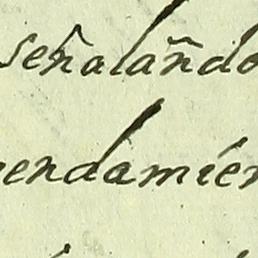 señalando
endamíen